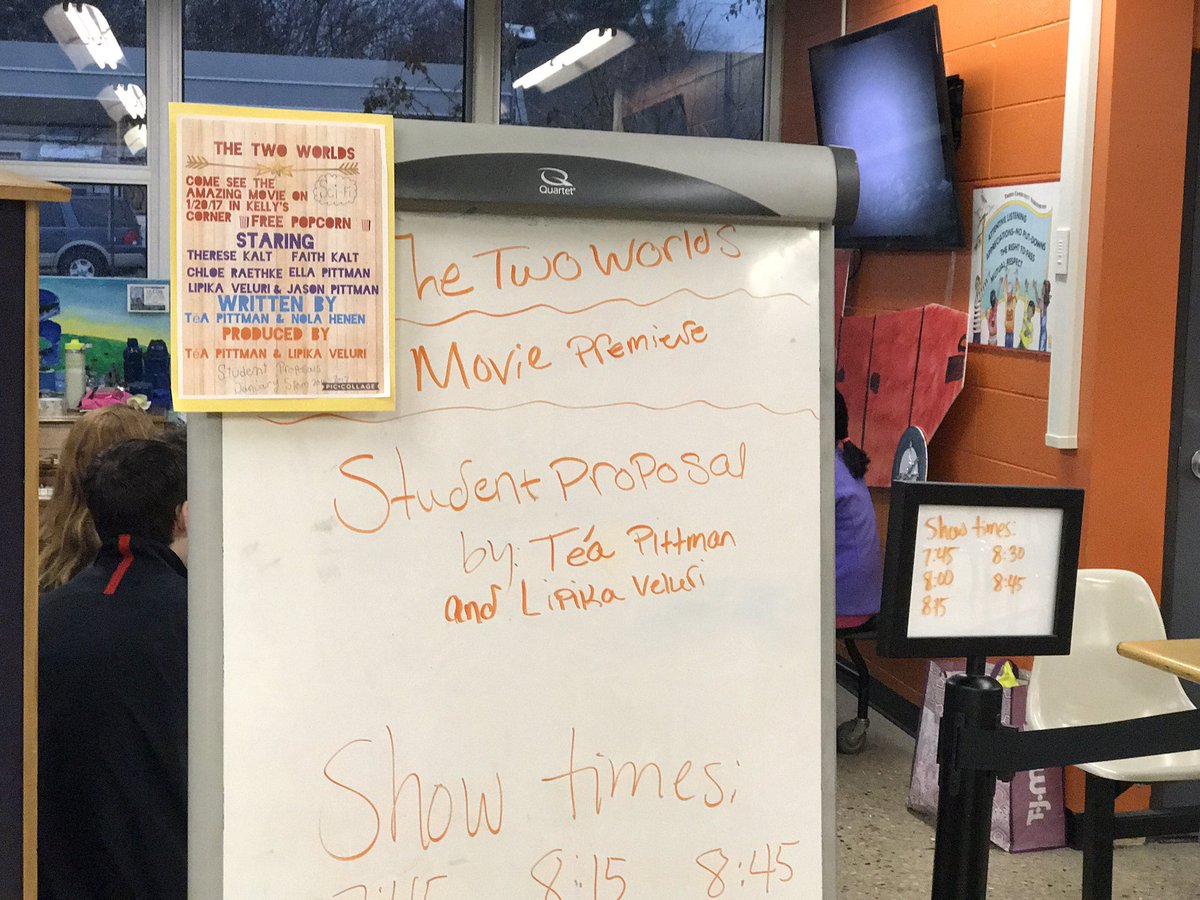 THE TWO WORLDS
COME SEE THE
AMAZING MOVIE ON
1/20/17 IN KELLY'S
CORNER
Sci-Fi
FREE POPCORN
STARING
THERESE KALT FAITH KALT
CHLOE RAETHKE ELLA PITTMAN
LIPIKA VELURI & JASON PITTMAN
WRITTEN BY
TéA PITTMAN & NOLA HENEN
PRODUCED BY
TéA PITTMAN & LIPIKA VELURI
Student Proposals
PIC•COLLAGE
Quartet
The Two Worlds
Movie Premiere
Student Proposal
by: Téa Pittman
and Lipika Veluri
Show times:
7:45 8:15 8:45
ATTENTIVE LISTENING
APPRECIATIONS-NO PUT-DOWNS
THE RIGHT TO PASS
MUTUAL RESPECT
Show times:
7:45 8:30
8:00 8:45
8:15